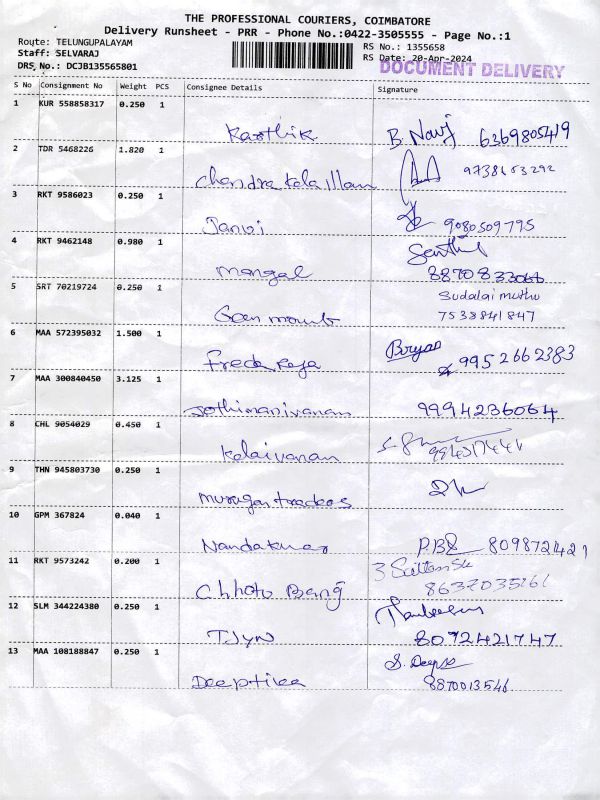 THE PROFESSIONAL COURIERS, COIMBATORE
Delivery Runsheet - PRR - Phone No.:0422-3505555 - Page No.:1
Route: TELUNGUPALAYAM
Staff: SELVARAJ
DRS No.: DCJB135565801
RS No.: 1355658
RS Date: 20-Apr-2024
DOCUMENT DELIVERY
S No Consignment No Weight PCS Consignee Details Signature
1 KUR 558858317 0.250 1
Karthik 6369805419
2 TDR 5468226 1.820 1
Chandrakala 
3 RKT 9586023 0.250 1
Janvi 9080509795
4 RKT 9462148 0.980 1
Senthil
mangal
5 SRT 70219724 0.250 1
Sudalai muthu
7538841847
6 MAA 572395032 1.500 1
9952662383
7 MAA 300840450 3.125 1
Jothimanivanan 9994236064
8 CHL 9054029 0.450 1
Kalaivanan
9 THN 945803730 0.250 1
murugan traders
10 GPM 367824 0.040 1
Nandakumar 8098721421
11 RKT 9573242 0.200 1
12 SLM 344224380 0.250 1
TJYN 8072421747
13 MAA 108188847 0.250 1
S. Deepa
Deeptika 8870013546